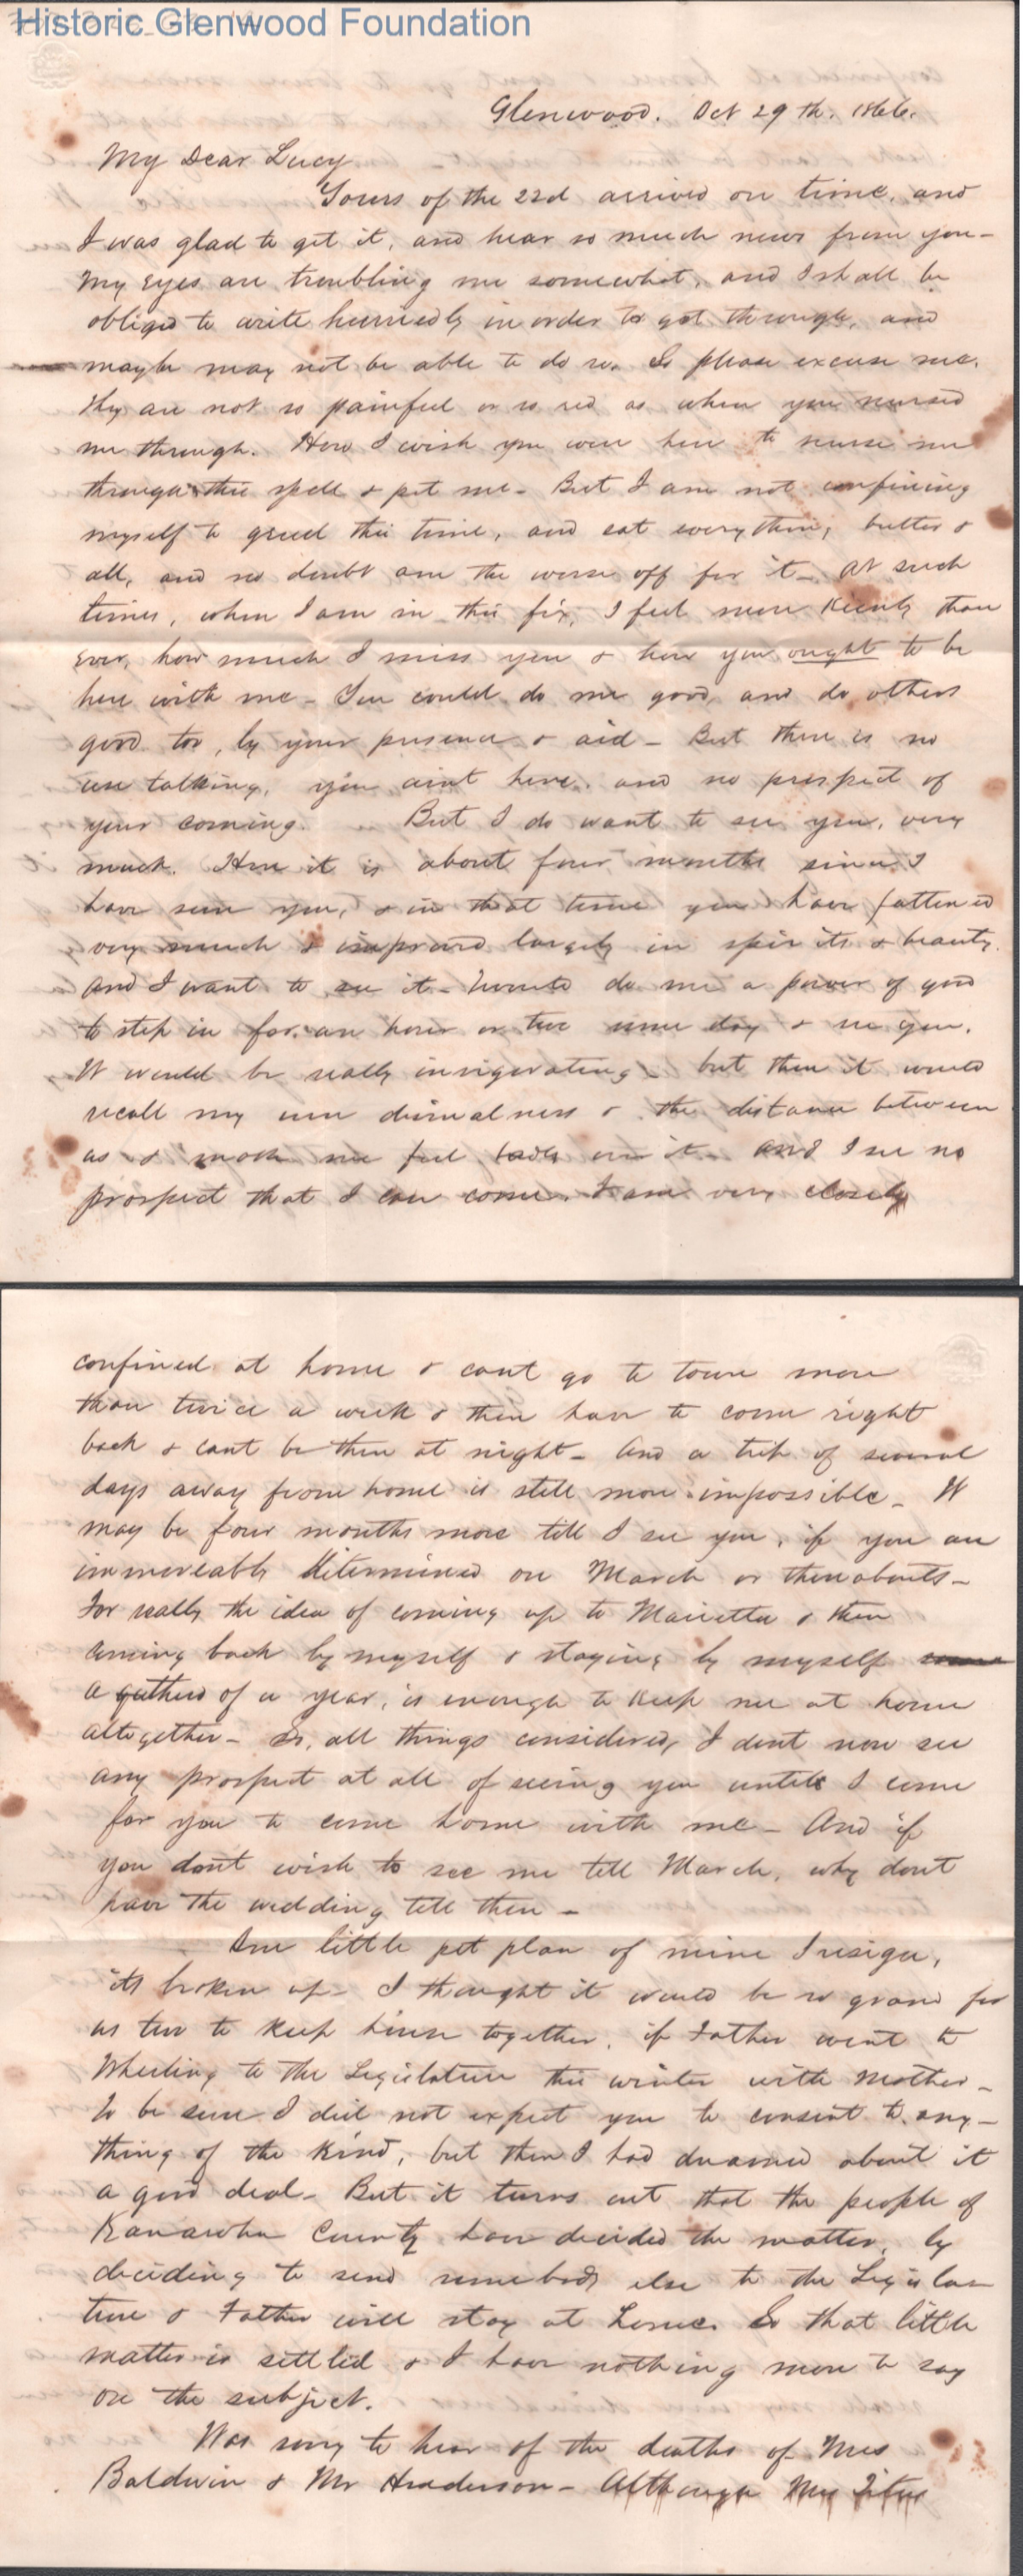 Historic Glenwood Foundation
Glenwood. Oct 29th. 1866.
My Dear Lucy
Yours of the 22d arrived on time, and
I was glad to get it, and hear so much news from you-
My eyes are troubling me somewhat, and I shall be
obliged to write hurriedly in order to get through, and
maybe may not be able to do so. So please excuse me.
They are not so painful or so red as when you nursed
me through. How I wish you were here to nurse me
through this spell & pet me- But I am not confining
myself to gruel this time, and eat everything, butter &
all, and no doubt am the worse off for it- At such
times, when I am in this fix, I feel more keenly than
ever, how much I miss you & how you ought to be
here with me- You could do me good, and do others
good too, by your presence & aid- But there is no
use talking, you aint here, and no prospect of
your coming. But I do want to see you, very
much. Here it is about four months since I
have seen you, & in that time you have fattened
very much & improved largely in spirits & beauty.
And I want to see it- Twould do me a power of good
to step in for an hour or two some day & see you.
It would be really invigorating- but then it would
recall my own dismalness & the distance between
us & make me feel badly over it- And I see no
prospect that I can come. I am very closely
confined at home & cant go to town more
than twice a week & then have to come right
back & cant be there at night- And a trip of several
days away from home is still more impossible- It
may be four months more till I see you, if you are
immoveably determined on March or thereabouts-
For really the idea of coming up to Marietta & then
coming back by myself & staying by myself
a of a year, is enough to keep me at home
altogether- So, all things considered, I dont now see
any prospect at all of seeing you until I come
for you to come home with me- And if
you dont wish to see me till March, why dont
have the wedding till then-
One little pet plan of mine I resign,
its broken up- I thought it would be so grand for
us two to keep house together, if Father went to
Wheeling to the Legislature this winter with Mother-
To be sure I did not expect you to consent to any-
thing of the kind, but then I had dreamed about it
a good deal- But it turns out that the people of
Kanawha County have decided the matter, by
deciding to send somebody else to the Legisla-
ture & Father will stay at home. So that little
matter is settled & I have nothing more to say
on the subject.
Was sorry to hear of the deaths of Mrs
Baldwin & Mr Henderson- Although Mrs Titus